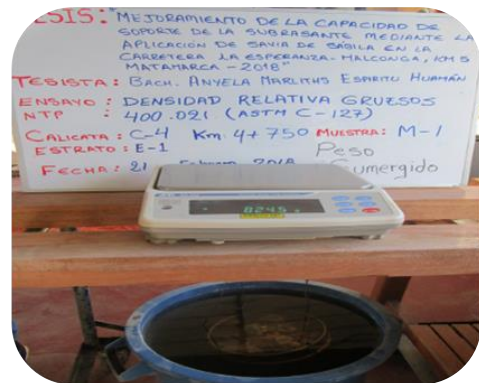 ESIS: MEJORAMIENTO DE LA CAPACIDAD DE
SOPORTE DE LA SUBRASANTE MEDIANTE LA
APLICACIÓN DE SAVIA DE SABILA EN LA
CARRETERA LA ESPERANZA-MALCONGA, KM 5
MATAMARCA - 2018"
TESISTA: BACH. ANYELA MARLITHS ESPIRITU HUAMÁN
ENSAYO : DENSIDAD RELATIVA GRUESOS
NTP : 400.021 (ASTM C-127)
CALICATA : C-4 Km: 4+750 MUESTRA: M-1
ESTRATO : E-1 Peso
FECHA : 21 Febrero 2018 Sumergido